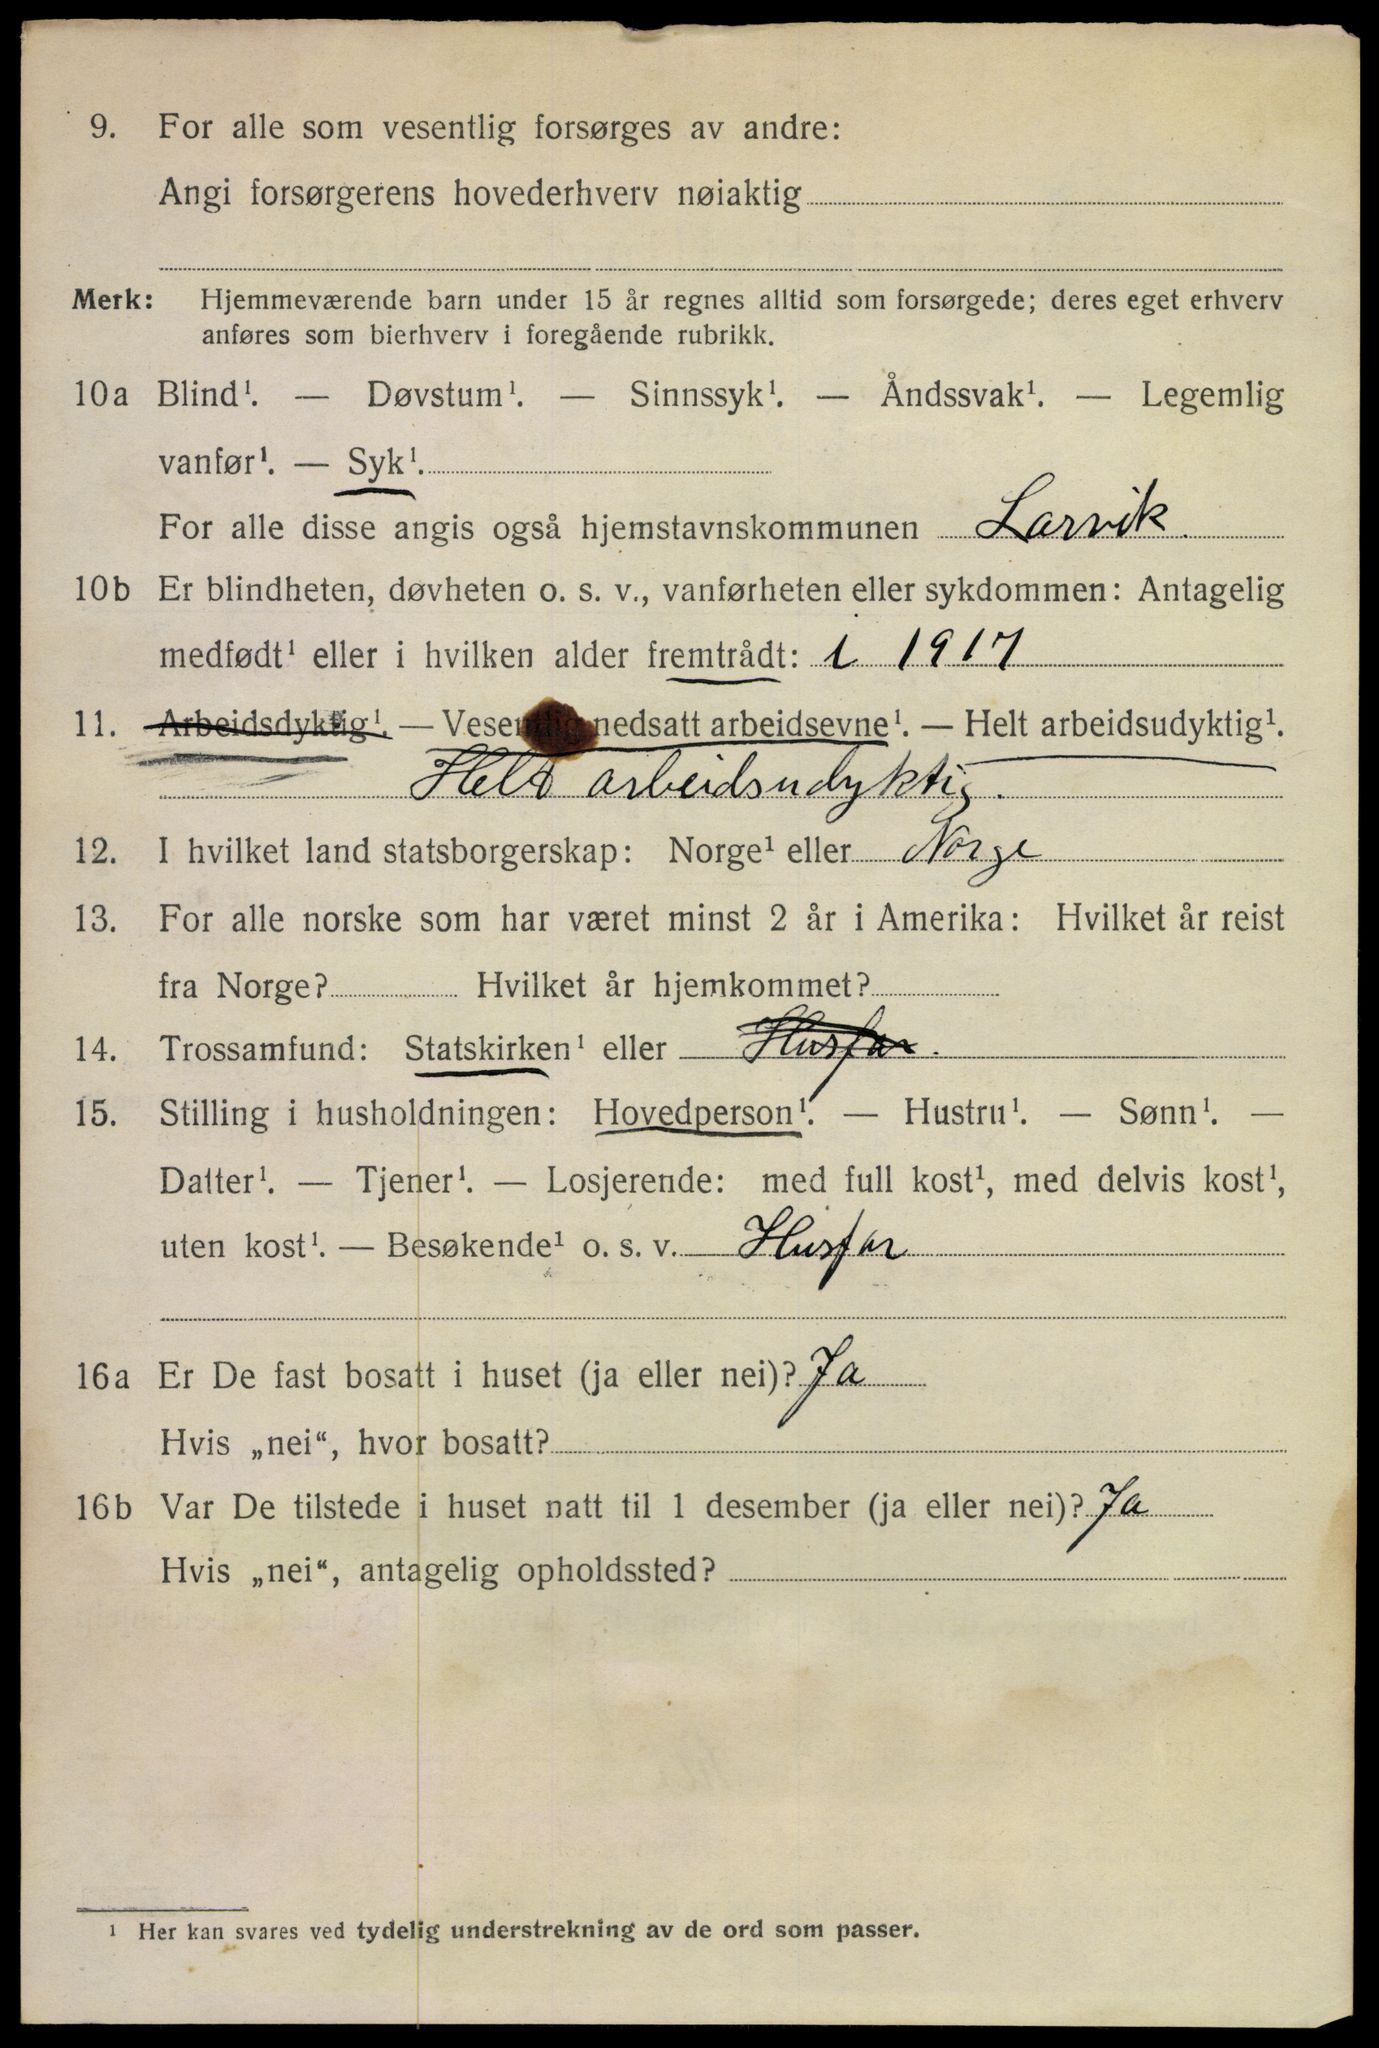 9. For alle som vesentlig forsørges av andre:
Angi forsørgerens hovederhverv nøiaktig
Merk: Hjemmeværende barn under 15 år regnes alltid som forsørgede; deres eget erhverv
anføres som bierhverv i foregående rubrikk.
10a Blind¹. — Døvstum¹. — Sinnssyk¹. — Åndssvak¹. — Legemlig
vanfør¹. — Syk¹.
For alle disse angis også hjemstavnskommunen Larvik.
10b Er blindheten, døvheten o. s. v., vanførheten eller sykdommen: Antagelig
medfødt¹ eller i hvilken alder fremtrådt: i 1917
11. Arbeidsdyktig¹. — Vesentlig nedsatt arbeidsevne¹. — Helt arbeidsudyktig¹.
Helt arbeidsudyktig.
12. I hvilket land statsborgerskap: Norge¹ eller Norge
13. For alle norske som har været minst 2 år i Amerika: Hvilket år reist
fra Norge? Hvilket år hjemkommet?
14. Trossamfund: Statskirken¹ eller Husfar.
15. Stilling i husholdningen: Hovedperson¹. — Hustru¹. — Sønn¹. —
Datter¹. — Tjener¹. — Losjerende: med full kost¹, med delvis kost¹,
uten kost¹. — Besøkende¹ o. s. v. Husfar
16a Er De fast bosatt i huset (ja eller nei)? Ja
Hvis „nei“, hvor bosatt?
16b Var De tilstede i huset natt til 1 desember (ja eller nei)? Ja
Hvis „nei“, antagelig opholdssted?
¹ Her kan svares ved tydelig understrekning av de ord som passer.